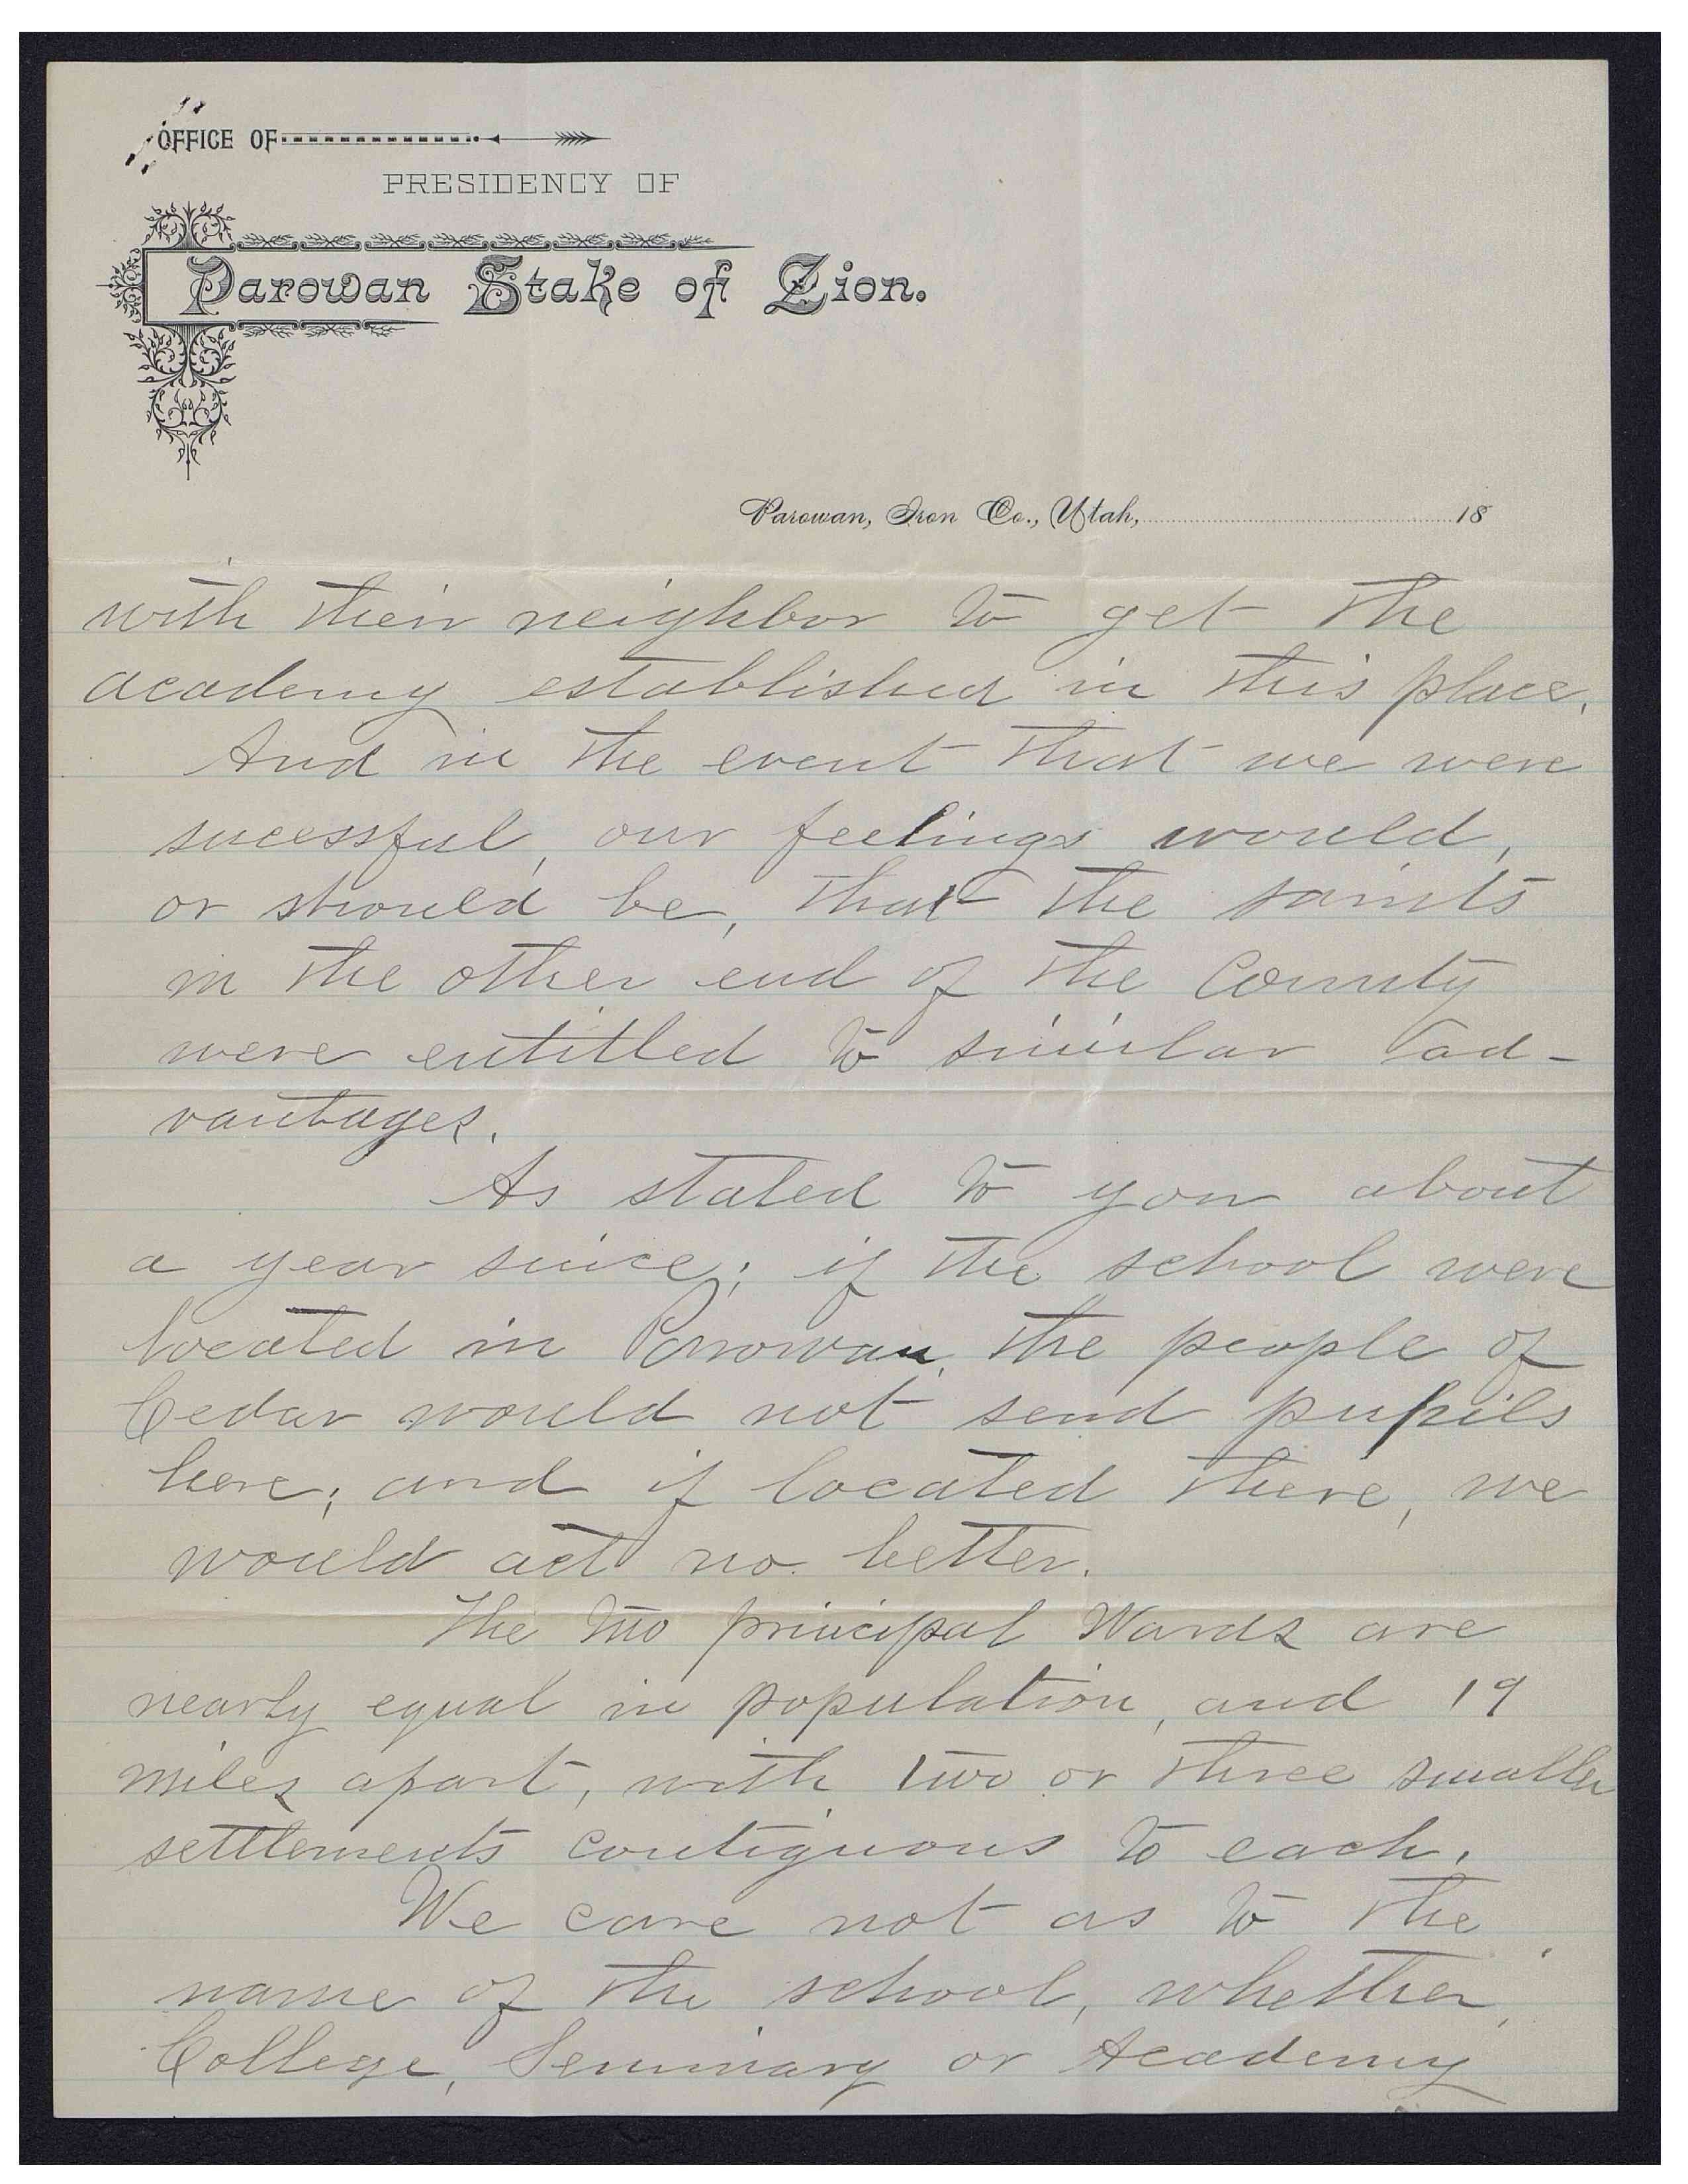 OFFICE OF
PRESIDENCY OF
Parowan Stake of Zion.
Parowan, Iron Co., Utah, 18
with their neighbor to get the
academy established in this place.
And in the event that we were
sucessful, our feelings would,
or should be, that the saints
in the other end of the County
were entitled to similar ad-
vantages.
As stated to you about
a year since; if the school were
located in Parowan, the people of
Cedar would not send pupils
here; and if located there, we
would act no better.
The two principal Wards are
nearly equal in population, and 19
miles apart, with two or three smaller
settlements contiguous to each.
We care not as to the
name of the school, whether,
College, Seminary or Academy